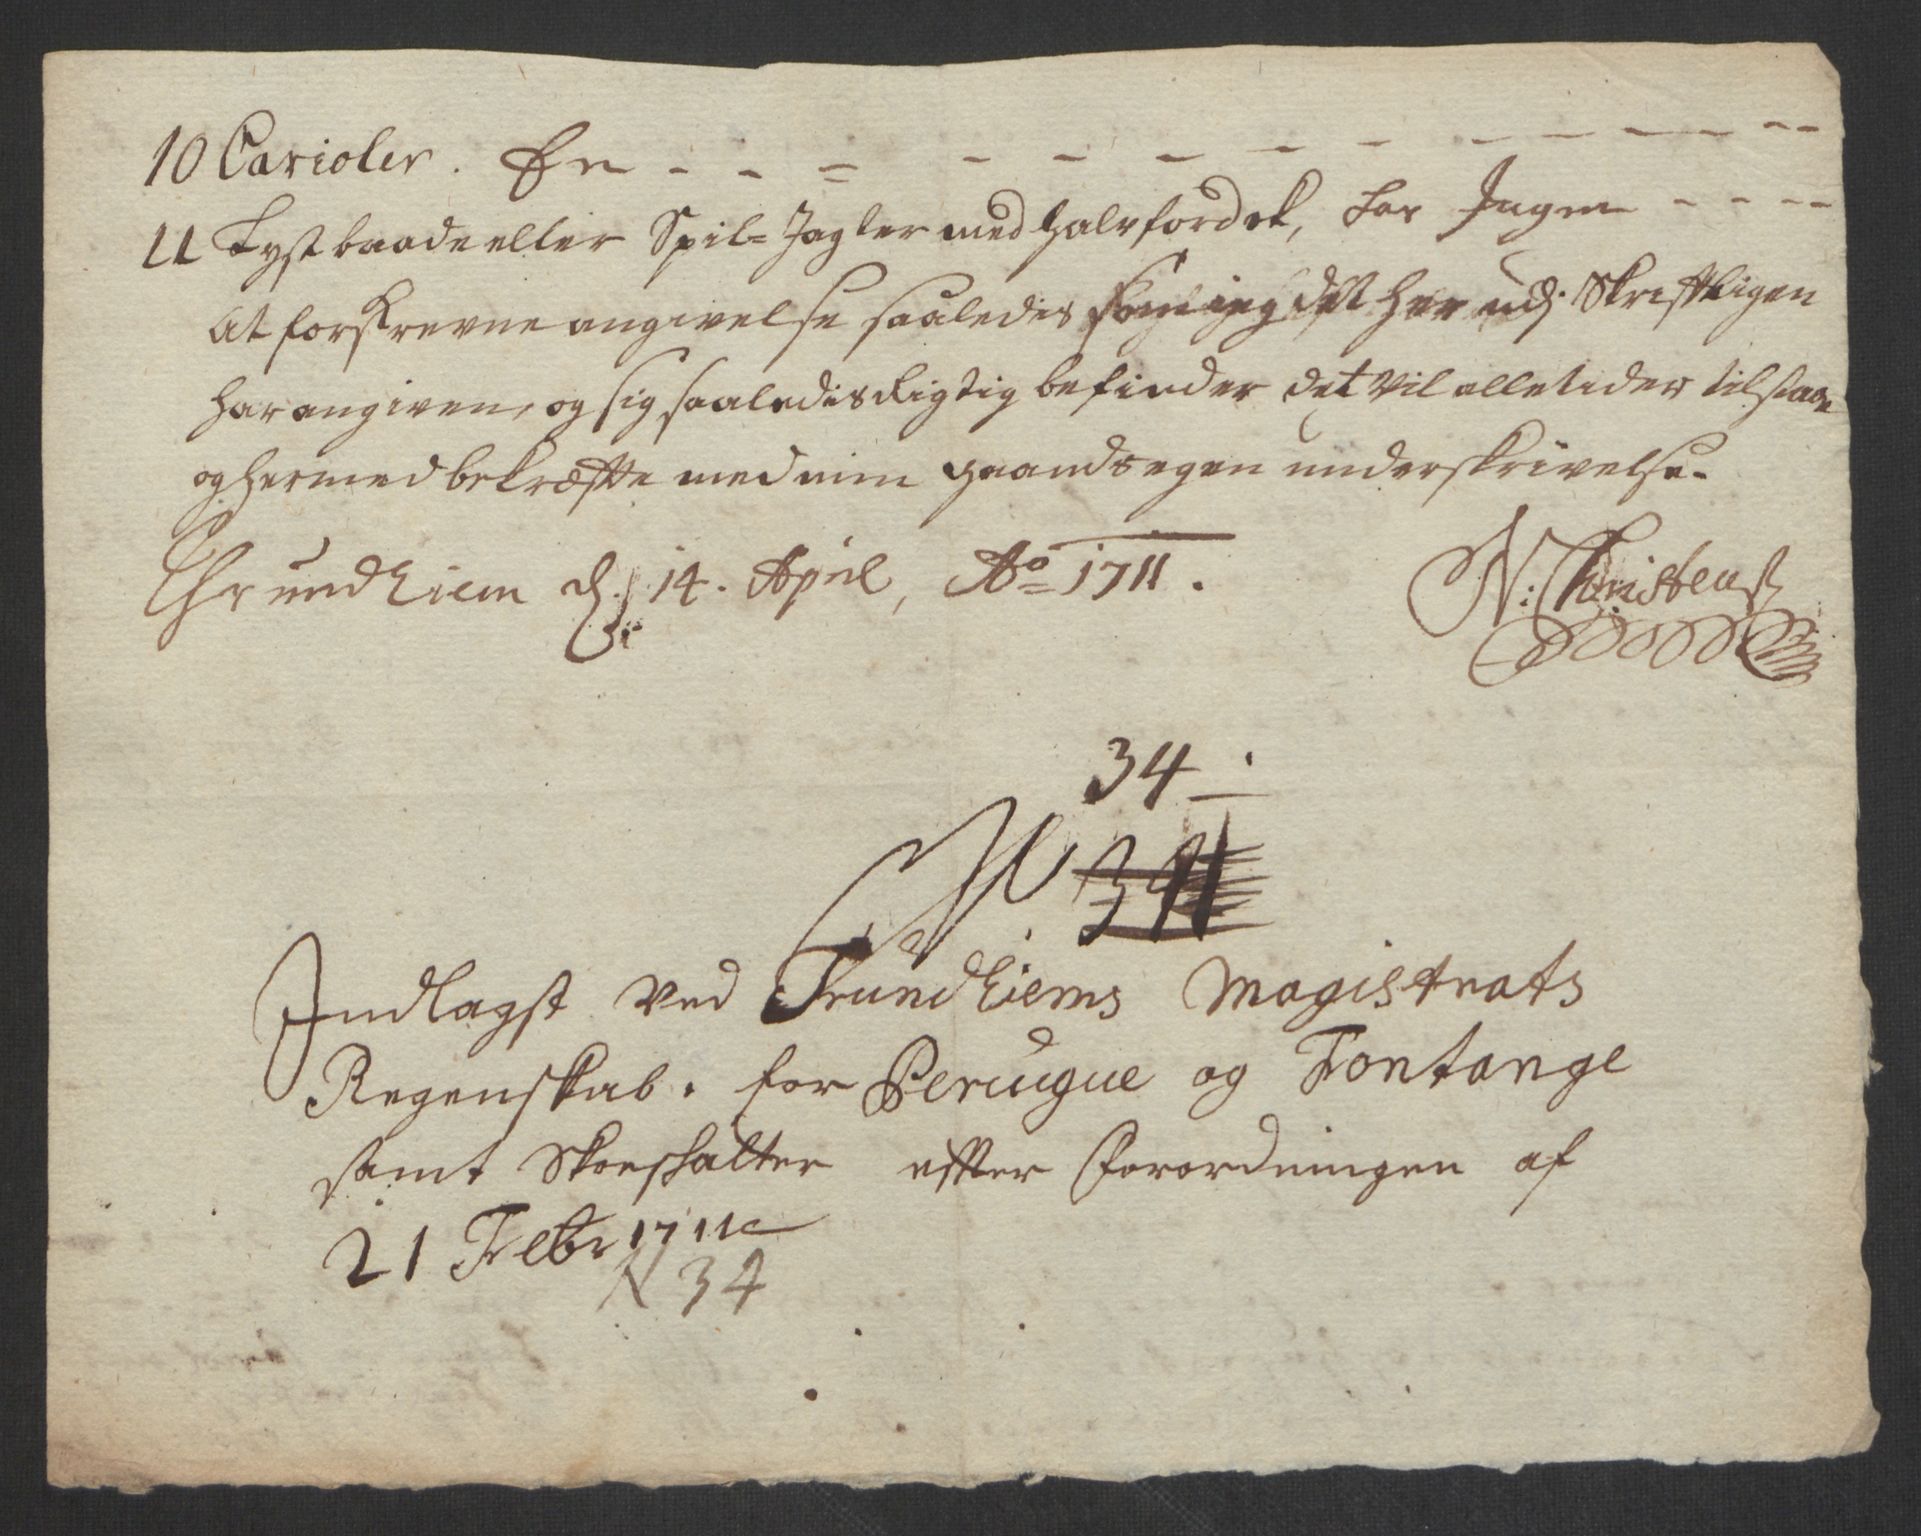 10 Carioler. En - - = - - - - - - - - - - -
11 Lystbaade eller Spil= Jagter med halvfordek, har Ingen - - - -
At forskrevne angivelse saaledis som jeg det her udj Skriftligen
har angiven, og sig saaledis Rigtig befinder det vil alletider tilstaae
og hermed bekræfte med min haands egen underskrivelse.
Thrundhiem d. 14. April, Ao 1711.
N: Christens
34
No 341
Indlagst ved Trundhiems Magistrats
Regenskab. for Peruque og Fontange
samt Skoeskatter efter Forordningen af
21 Febr 1711
N 34